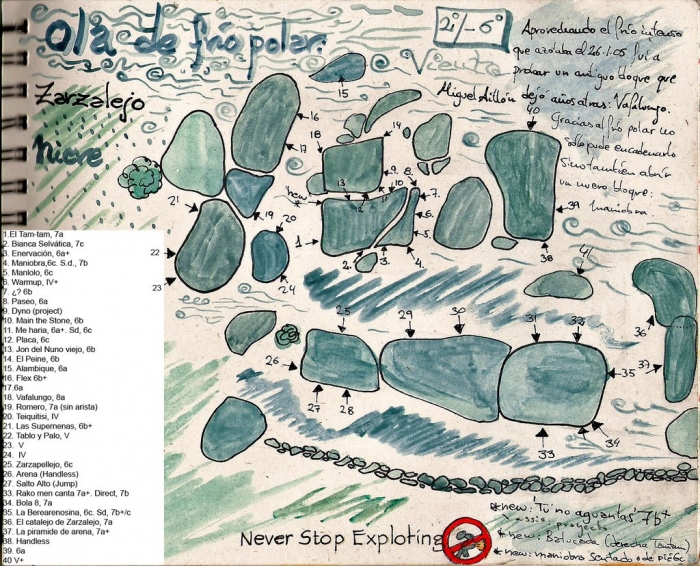 Ola de frío polar.
2º/-6º
Zarzalejo
Nieve
Viento
Aprovechando el frío intenso
que azotaba el 26-1-05 fui a
probar un antiguo bloque que
Miguel Aillón dejó años atrás: Vafalungo.
Gracias al frío polar no
sólo pude encadenarlo
Sino también abrir
un nuevo bloque:
maniobra
1.El Tam-tam, 7a
2. Bianca Selvática, 7c
3. Enervación, 6a+
4. Maniobra,6c. S.d., 7b
5. Manlolo, 6c
6. Warmup, IV+
7. ¿? 6b
8. Paseo, 6a
9. Dyno (project)
10. Main the Stone, 6b
11. Me haria, 6a+. Sd, 6c
12. Placa, 6c
13. Jon del Nuno viejo, 6b
14. El Peine, 6b
15. Alambique, 6a
16. Flex 6b+
17.6a
18. Vafalungo, 8a
19. Romero, 7a (sin arista)
20. Teiquitisi, IV
21. Las Supernenas, 6b+
22. Tablo y Palo, V
23. V
24. IV
25. Zarzapellejo, 6c
26. Arena (Handless)
27. Salto Alto (Jump)
33. Rako men canta 7a+. Direct, 7b
34. Bola 8, 7a
35. La Berearenosina, 6c. Sd, 7b+/c
36. El catalejo de Zarzalejo, 7a
37. La piramide de arena, 7a+
38. Handless
39. 6a
40 V+
15
16
17
18
14
13
12
11
10
9
8
7
6
5
4
3
2
1
new
19
20
21
22
23
24
40
39
38
41
25
26
27
28
29
30
31
32
33
34
35
36
37
Never Stop Exploting
*new: 'Tu no aguantas' 7b+
proyecto
*new: Batucada (derecha Tamtam)
*new: maniobra Sentado o de pie 6c